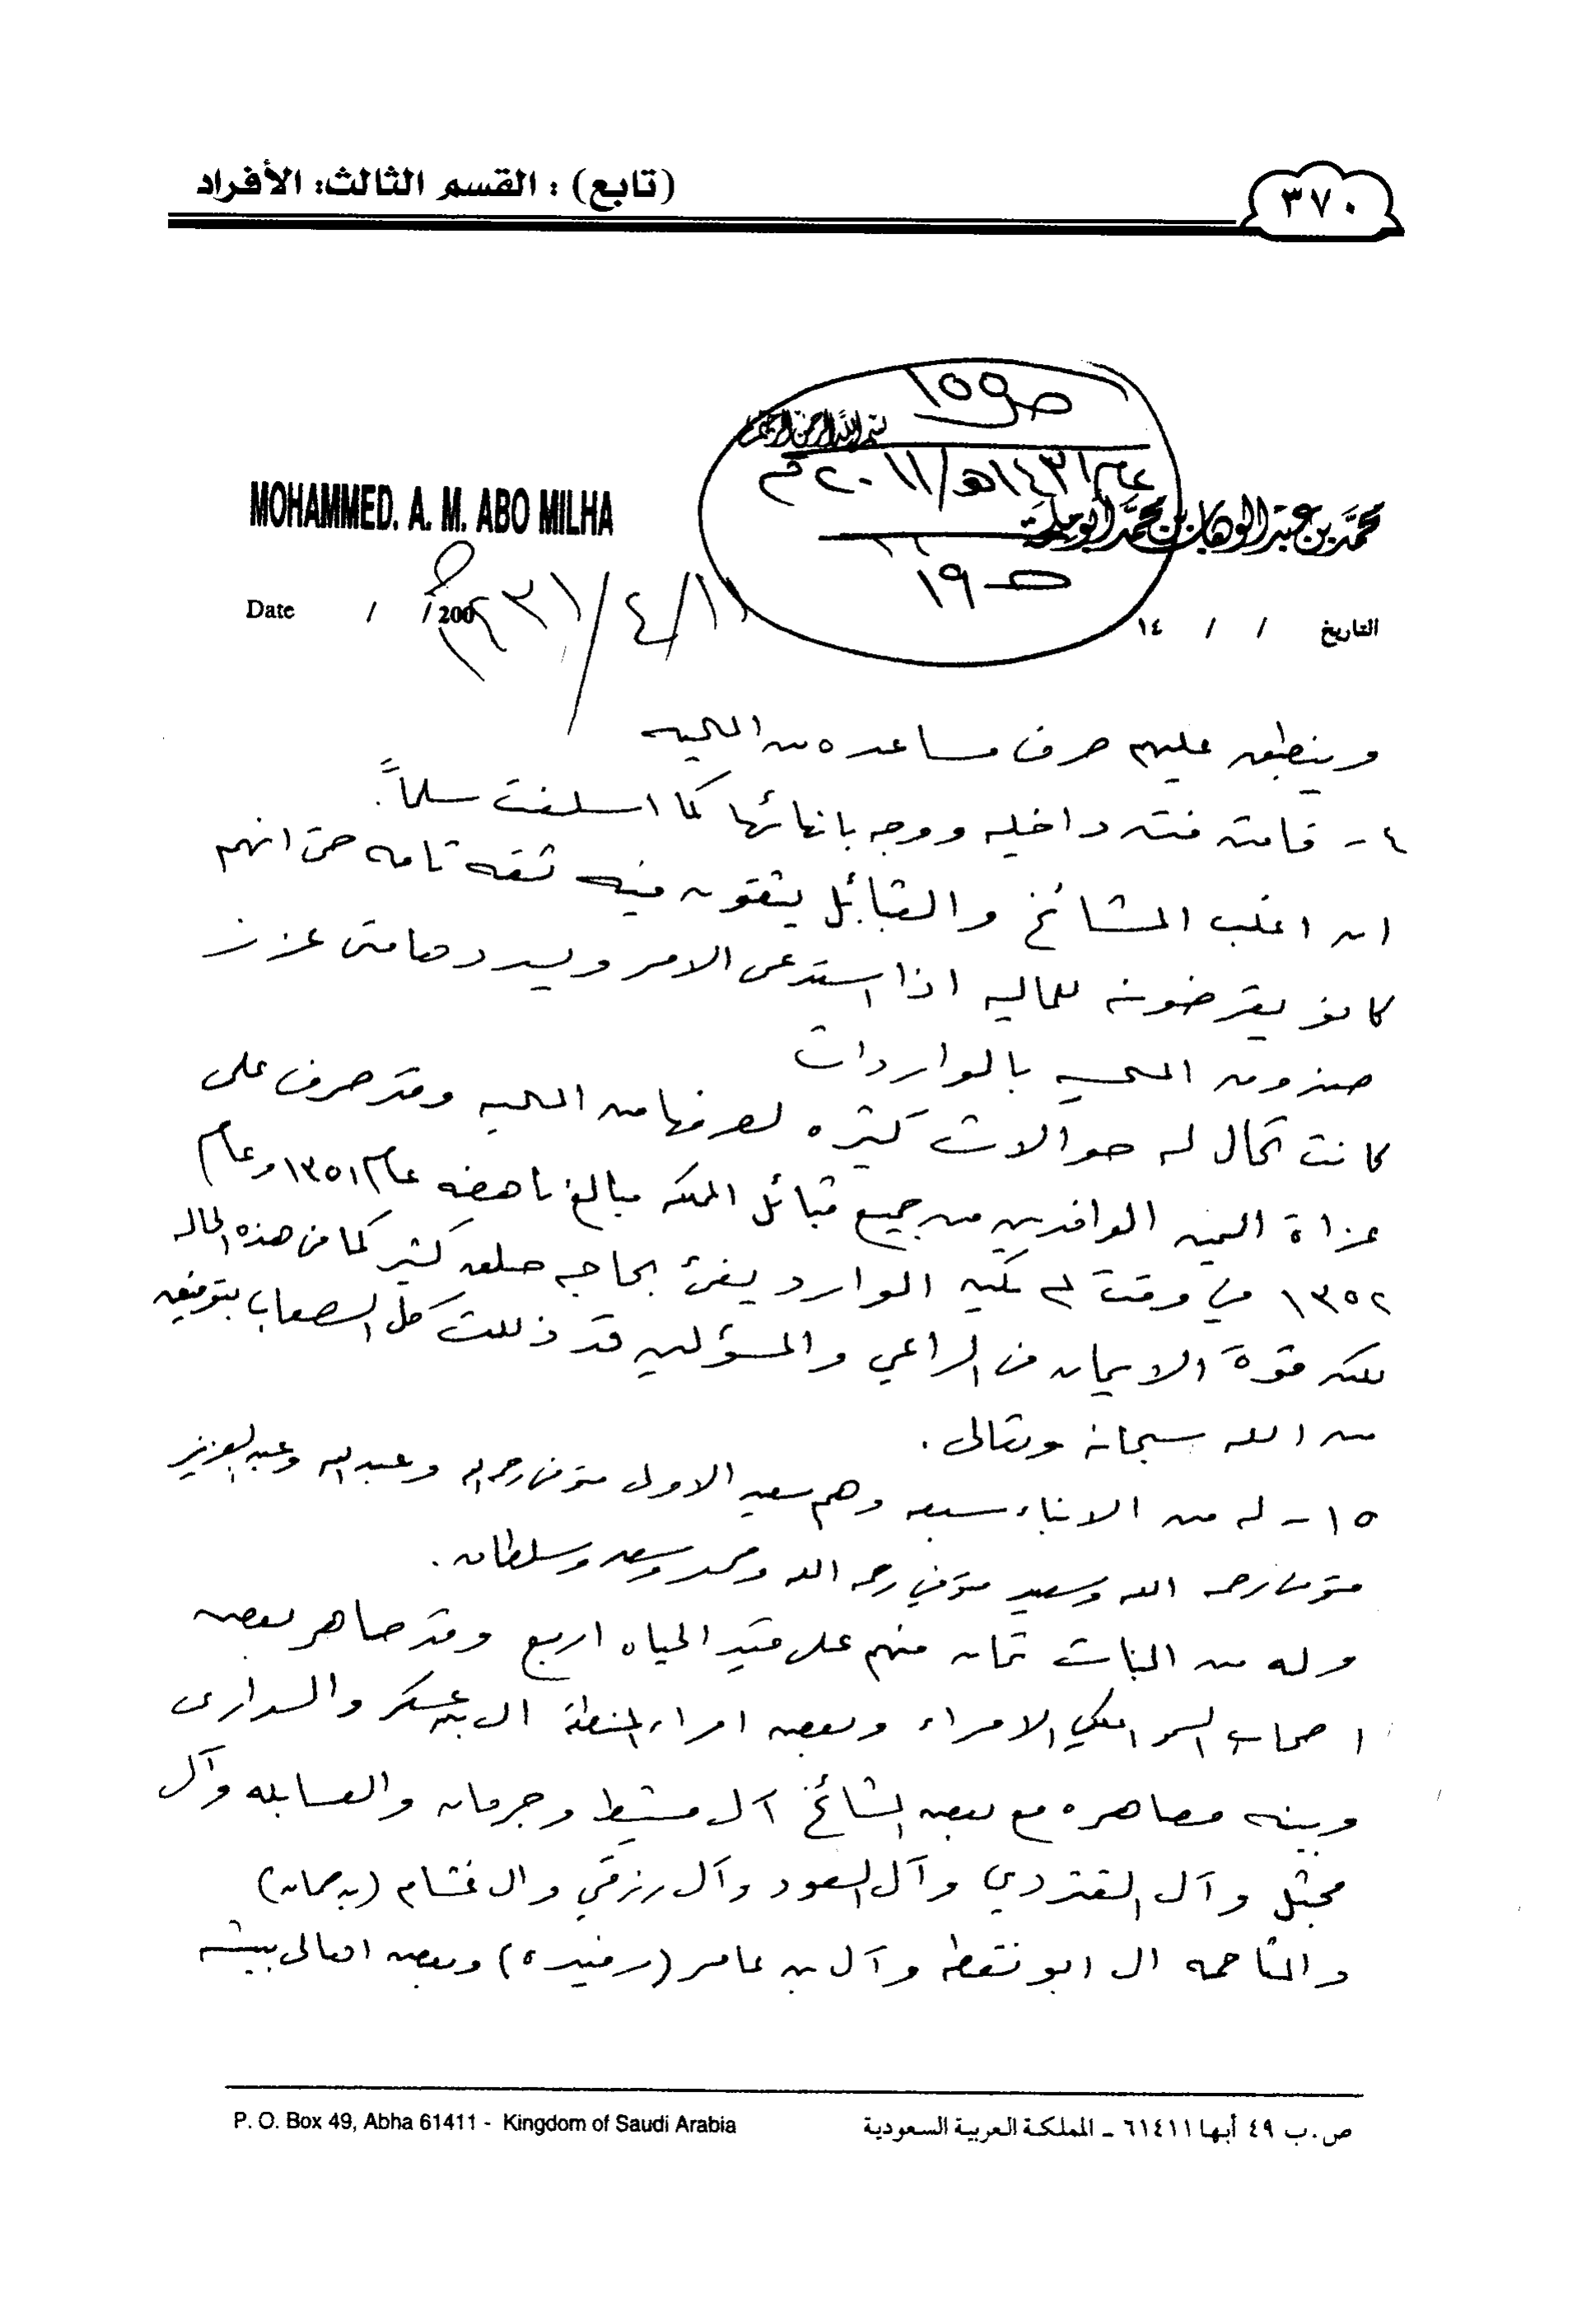 ٣٧٠
(تابع) : القسم الثالث: الأفراد
ص١٥٥
بسم الله الرحمن الرحيم
عام ١٤٣١هـ/٢٠١١م
MOHAMMED. A. M. ABO MILHA
محمد بن عبد الوهاب بن محمد أبو ملحة
ص ١٩
Date / /200
١٤٣١/٤/١١
التاريخ / / ١٤
وينطبق عليهم صرف مساعده من الماليه
٤ - قامت فتنه داخليه ووجه بانهائها كما اسلفت سلماً.
ان اغلب المشائخ والقبائل يثقون فيه ثقه تامه حتى انهم
كانو يقرضونه للماليه اذا استدعى الامر ويسددها متى عزز
صندوق الماليه بالواردات
كانت تحال له حوالات كثيره لصرفها من الماليه وقد صرف على
غزاة اليمن الوافدين من جميع قبائل المملكه مبالغ ناهضه عام ١٣٥١ وعام
١٣٥٢ في وقت لم يكن الوارد يفئ بحاجه خلق كثير كما في هذه الحاله
لكن قوة الايمان في الراعي والمسؤلين قد ذللت كل الصعاب بتوفيق
من الله سبحانه وتعالى.
١٥ - له من الابناء سبعه وهم سعيد الاول متوفى رحمه الله وعبد الله وعبد العزيز
متوفى رحمه الله وسعيد متوفي رحمه الله ومحمد وسعد وسلطان.
وله من البنات ثمان منهم على قيد الحياه اربع وقد صاهر بعض
اصحاب السمو الملكي الامراء وبعض امراء المنطقة ال بن عسكر والسدارى
وبينه مصاهره مع بعض المشائخ آل مشيط وجرمان والعسابله وآل
مجثل وآل القتردي وآل السعود وآل رزقي وال غشام (بن حمان)
والمتاحمه ال ابو نقطه وآل بن عامر (رفيده) وبعض اهالى بيشه
P. O. Box 49, Abha 61411 - Kingdom of Saudi Arabia
ص.ب ٤٩ أبها ٦١٤١١ - المملكة العربية السعودية